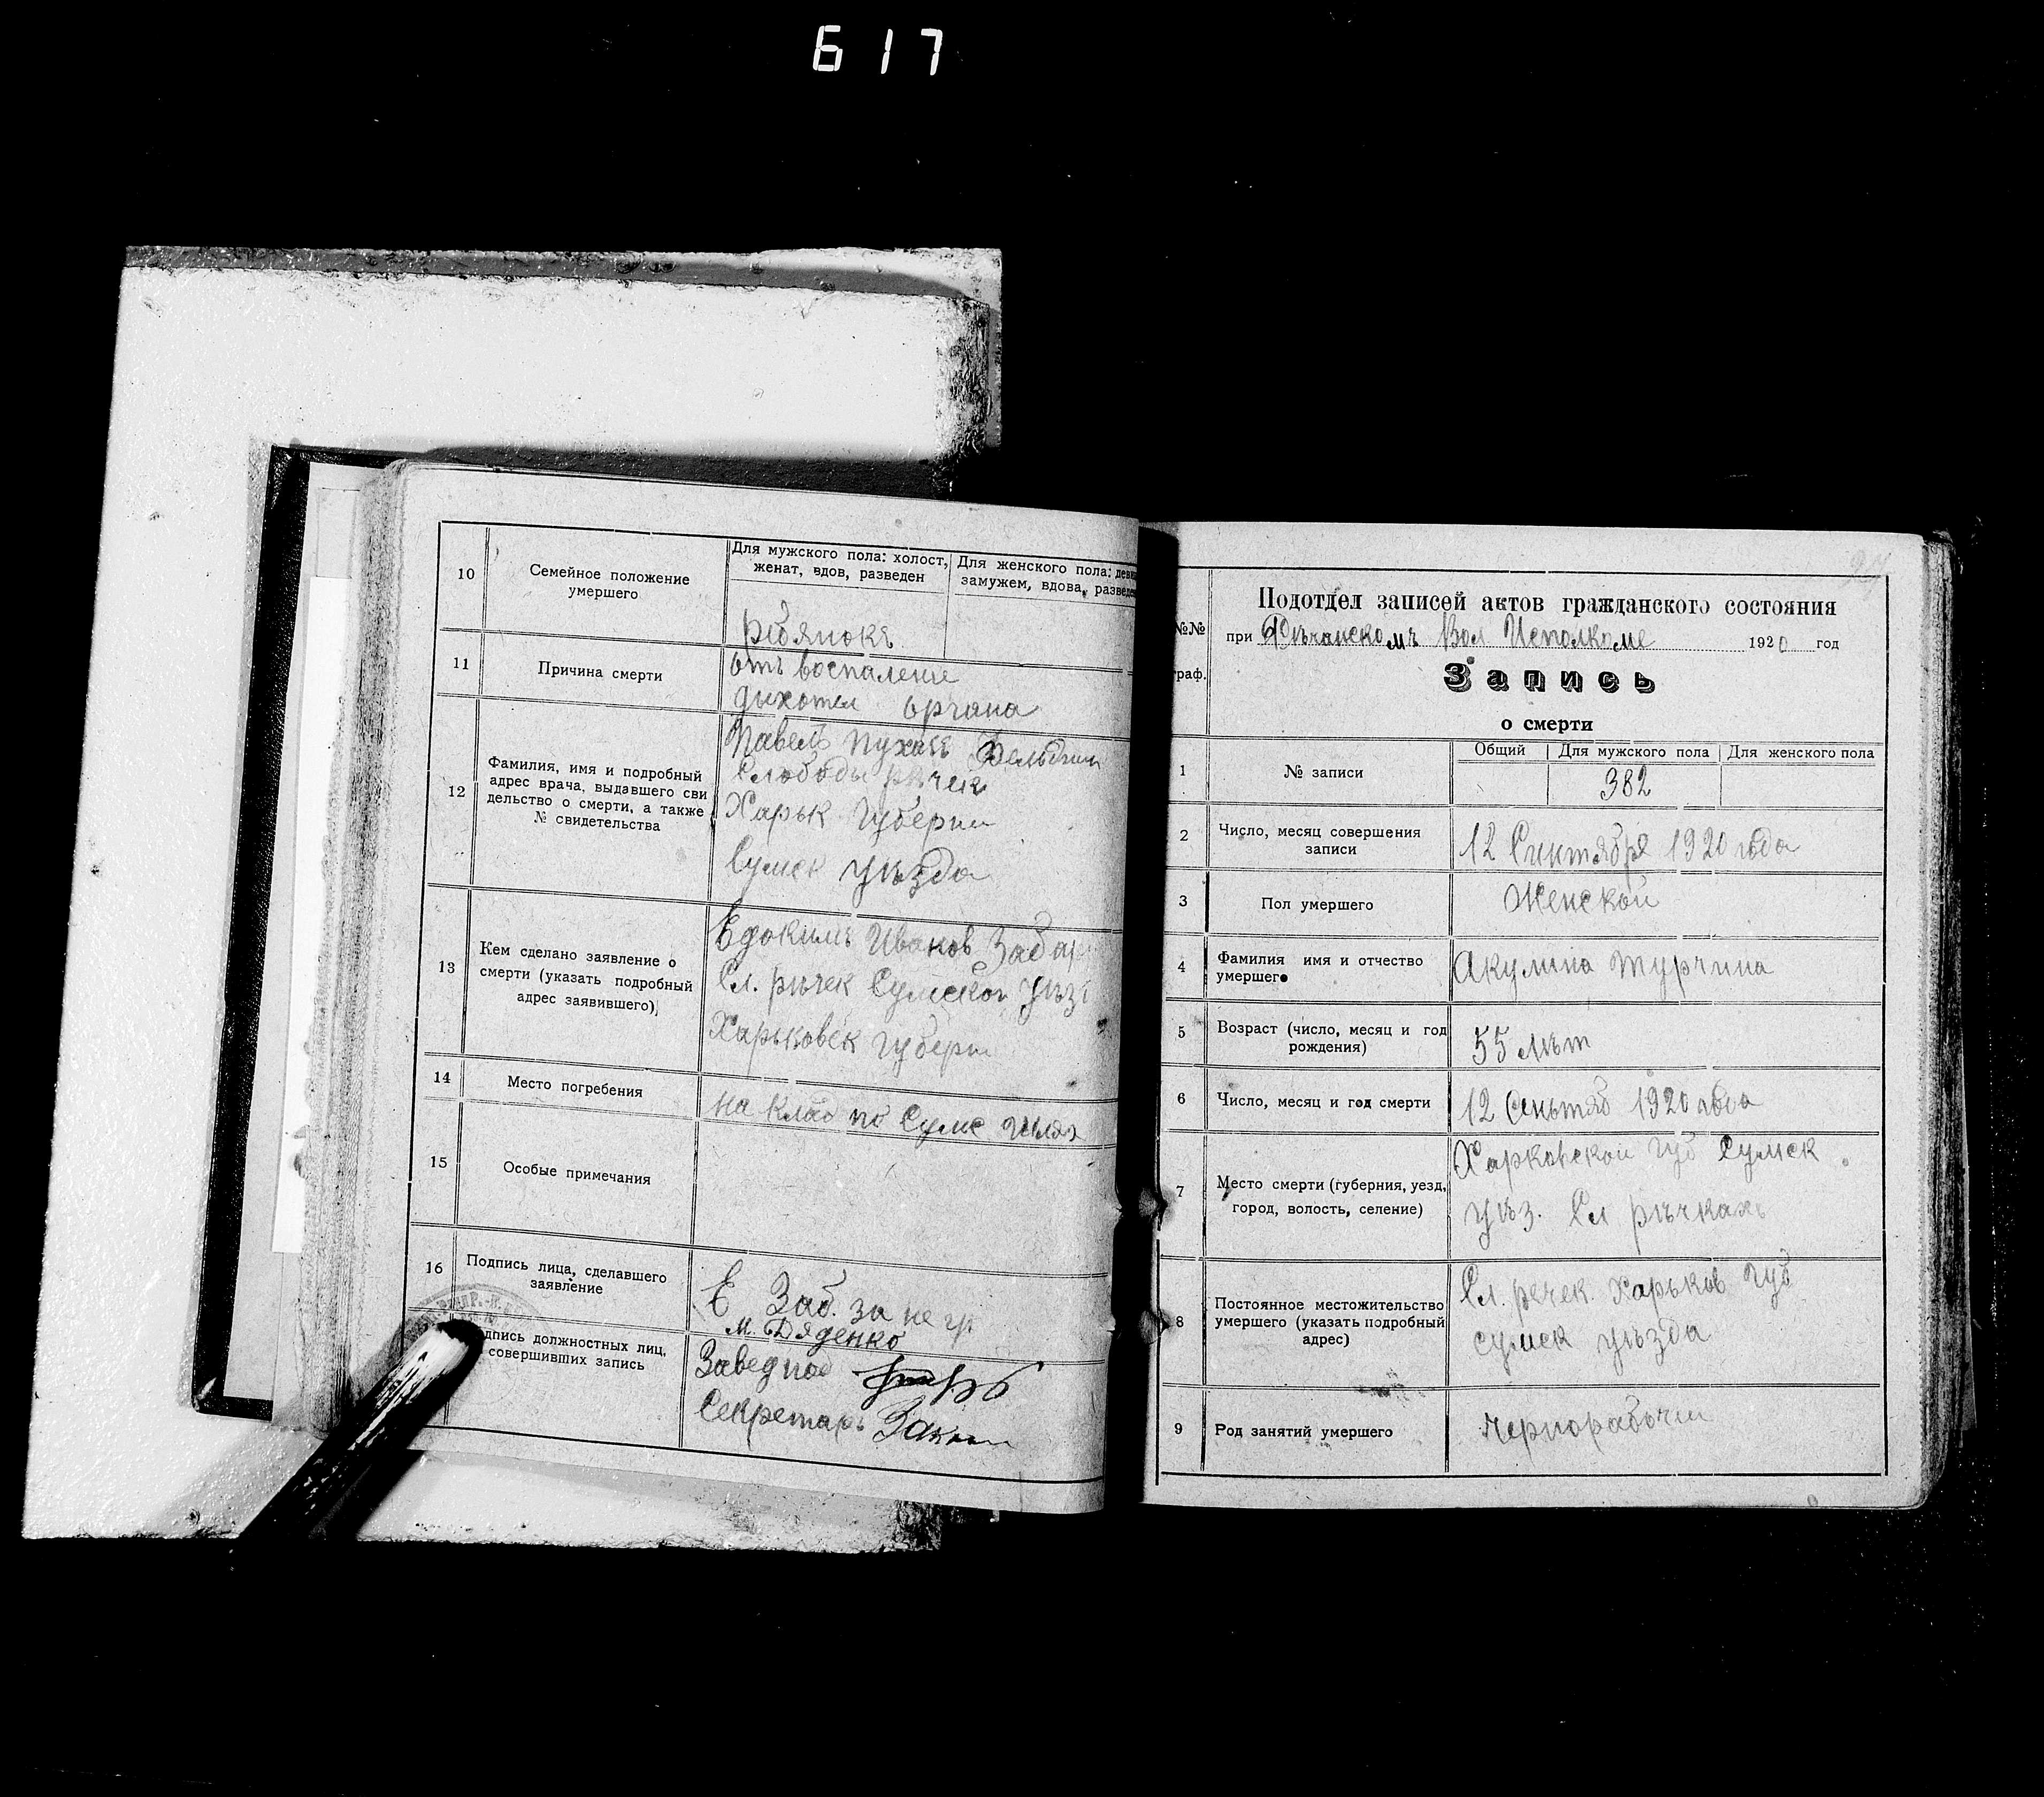 617
10
Семейное положение
умершего
Для мужского пола: холост,
женат, вдов, разведен
Для женского пола:
замужем, вдова,
11
Причина смерти
отъ воспаление
органа
12
Фамилия, имя и подробный
адрес врача, выдавшего сви
дельство о смерти, а также
№ свидетельства
Павелъ
Слободы рѣчек
Харьк Губерни
Сумск уѣзда
13
Кем сделано заявление о
смерти (указать подробный
адрес заявившего)
Евдокимъ Иванов
Сл. рѣчек Сумской
Харьковск губерн
14
Место погребения
на по Сумс
15
Особые примечания
16
Подпись лица, сделавшего
заявление
Е Заб. за не гр
М. Дяденко
должностных лиц,
совершивших запись
Завед под
Секретарь
№№
граф.
Подотдел записей актов гражданского состояния
при Рѣчанскомъ Вол Исполкоме 1920 год
Запись
о смерти
1
№ записи
Общий
Для мужского пола
Для женского пола
382
2
Число, месяц совершения
записи
12 Сентября 1920 года
3
Пол умершего
Женской
4
Фамилия имя и отчество
умершего
Акулина Турчина
5
Возраст (число, месяц и год
рождения)
55 лѣт
6
Число, месяц и год смерти
12 Сеньтяб 1920 года
7
Место смерти (губерния, уезд,
город, волость, селение)
Харковской губ Сумск
уѣз. Сл рѣчкахъ
8
Постоянное местожительство
умершего (указать подробный
адрес)
Сл. речек. Харьков Губ
сумск уѣзда
9
Род занятий умершего
Чернорабочи